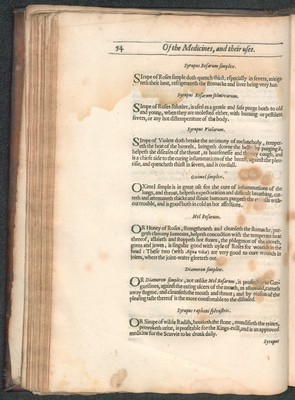 54 Of the Medicines, and their uses.
Syrupus Rosarum simplex.
SIrupe of Roses simple doth quench thirst, especially in fevers, mitigateth their heat, refrigerateth the stomacke and liver being very hot.
Syrupus Rosarum
SIrupe of Roses Solutive, is used as a gentle and safe purge both to old
and young, when they are molested either with burning or pestilent
fevers, or any hot distemperature of the body.
Syrupus Violarum.
SIrupe of Violets doth breake the acrimony of melancholy, tempereth
the heat of the bowels, bringeth downe the belly by purging it,
helpeth the diseases of the throat, as hoarsenesse and cough, and
is a chiefe aide to the curing inflammations of the breast, against the pleurisie, and quencheth thirst in fevers, and is cordiall.
Oximel simplex.
OXimel simple is in great use for the cure of inflammations of the
lungs, and throat, helpeth expectoration and difficult breathing, cutteth and attenuateth thicke and slimie humours purgeth the without trouble, and is good both in cold an hot affections.
Mel Rosarum.
OR Honey of Roses, strengtheneth and cleanseth the stomacke, purgeth clammy humours, helpeth concoction with the temperate heat
thereof, and stoppeth hot fluxes, the phlegmon of the mouth,
gums and jawes, is singular good with oyle of Roses for wounds in the
head: These two (with Aqua vitae) are very good to cure wounds in
joints, where the joint-water gleeteth out.
Diamoron simplex.
OR Diamoron simplex, not unlike Mel Rosarum, is
against the eating ulcers of the mouth,
away flegme, and cleanseth the mouth and throat; and by reason of the
pleasing taste thereof is the more comfortable to the diseased.
Syrupus raphani silvestris.
OR Sirupe of wilde Radish, the stone, mundifieth the reines,
provoketh urine, is profitable for the Kings-evill, and is an approved
medicine for the Scurvie to be drunk daily.
Syrupus